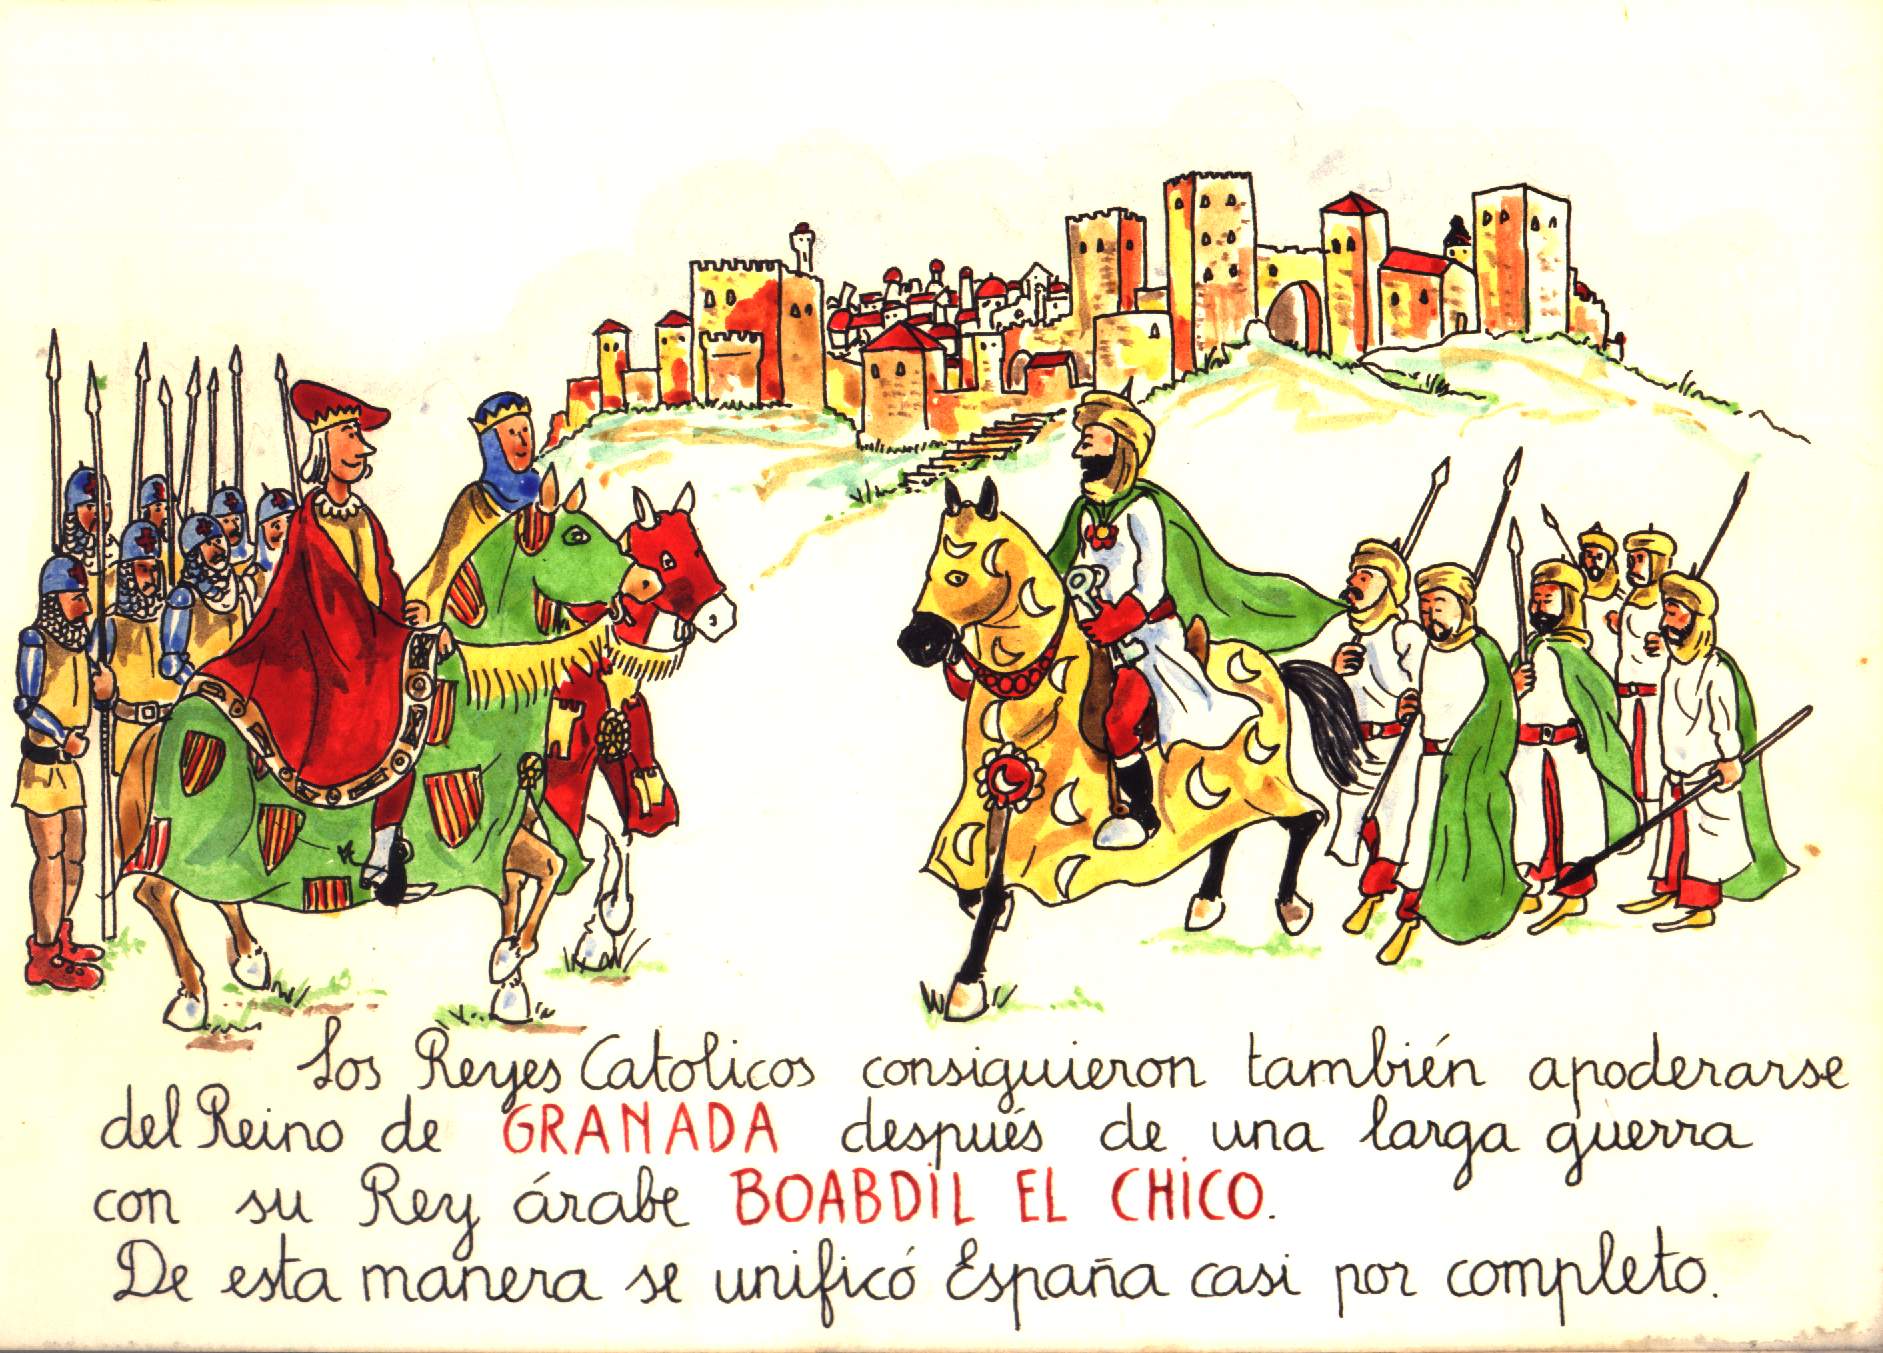 Los Reyes Catolicos consiguieron también apoderarse
del Reino de GRANADA después de una larga guerra
con su Rey árabe BOABDIL EL CHICO.
De esta manera se unificó España casi por completo.